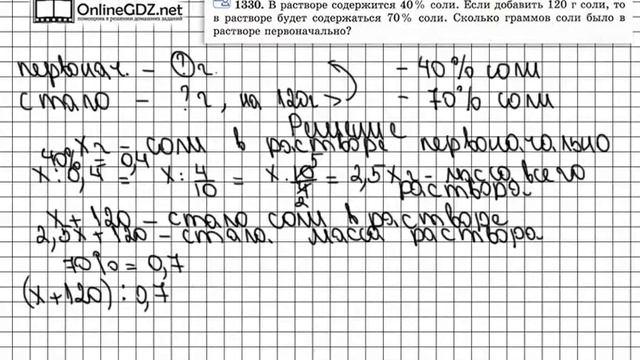 OnlineGDZ.net
помощник в решении домашних заданий
1330. В растворе содержится 40% соли. Если добавить 120 г соли, то
в растворе будет содержаться 70% соли. Сколько граммов соли было в
растворе первоначально?
первонач. – ? г. – 40% соли
стало – ? г, на 120г > – 70% соли
Решение
x г – соли в растворе первоначально
40% = 0,4
x : 0,4 = x : 4/10 = x · 10/4 = 2,5x г – масса всего
раствора
x + 120 – стало соли в растворе
2,5x + 120 – стало. масса раствора
70% = 0,7
(x + 120) : 0,7